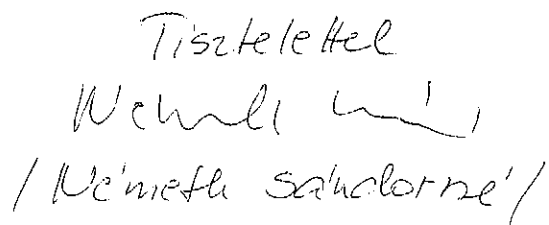 Tisztelettel
/ Németh Sándorné /